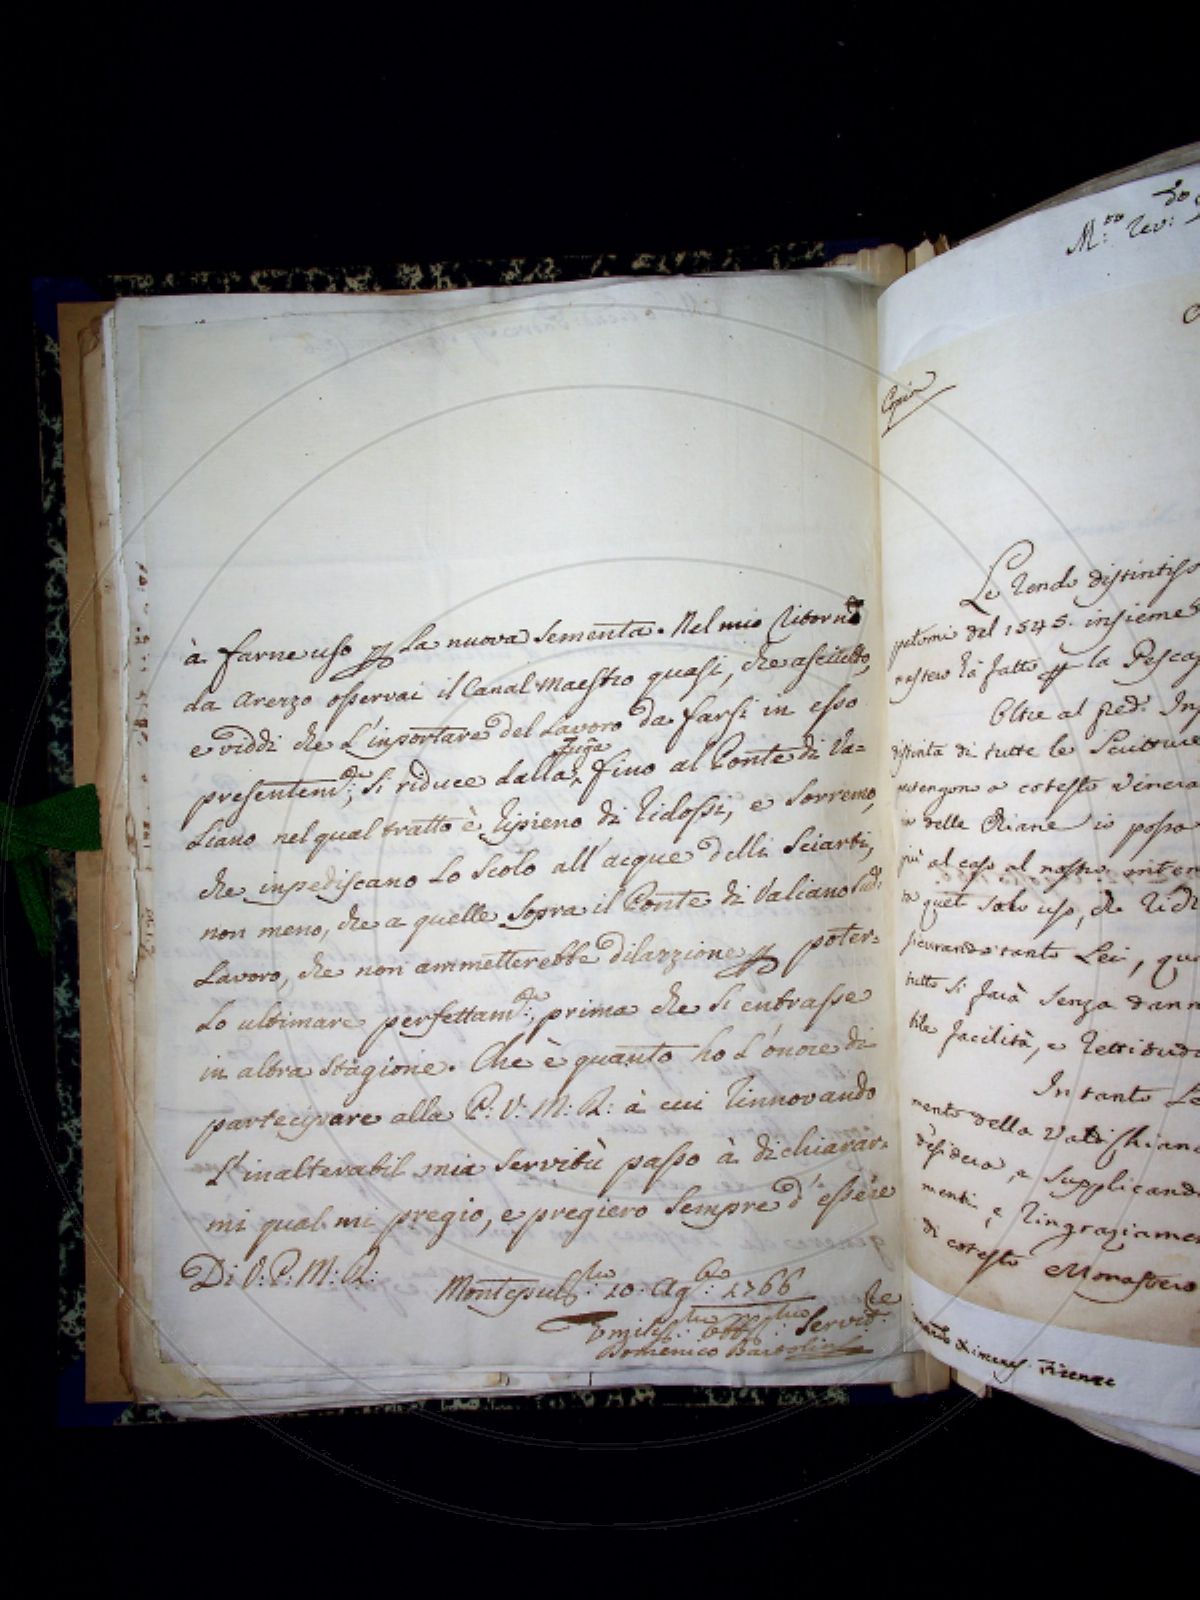 à farne uso p la nuova sementa. Nel mio Ritorno
da Arezzo osservai il Canal Maestro quasi, che ascitutto,
e viddi che L'inportare del Lavoro da farsi in esso
presentem.te, si riduce dalla fino al Ponte di Va=
liano nel qual tratto è ripieno di Ridossi, e Sorreno,
che inpediscano Lo Scolo all'acque delli Sciarti,
non meno, che a quelle sopra il Ponte di Valiano
Lavoro, che non ammetterebbe dilazzione p poter=
Lo ultimare perfettam.te, prima che si entrasse
in altra stagione. Che è quanto ho L'onore di
partecipare alla P: V: M: R: à cui rinnovando
L'inalterabil mia servitù passo à dichiarar=
mi qual mi pregio, e pregiero sempre d'essere
Di V: P: M: R:
Montepul.no 20: Ag.to 1766
Vmiliss.mo Obb.mo Servit.re
Domenico Bartolini
M.to Rev:
Copia
Le rendo distintiss
del 1545. insieme
nostero là fatta p la Pescaj
Oltre al pred. Ins
distinta di tutte le Scritture
a cotesto Vinera
delle Chiane io possa
più al caso al nostro inten
solo uso, che ridu
sicurando tanto Lei, qua
tutto si farà senza dann
facilità, e rettitudi
In tanto Le
mento della Val di Chiana
desidera, e supplicand
menti, e ringraziamen
di cotesto Monastero
Ximenes. Firenze